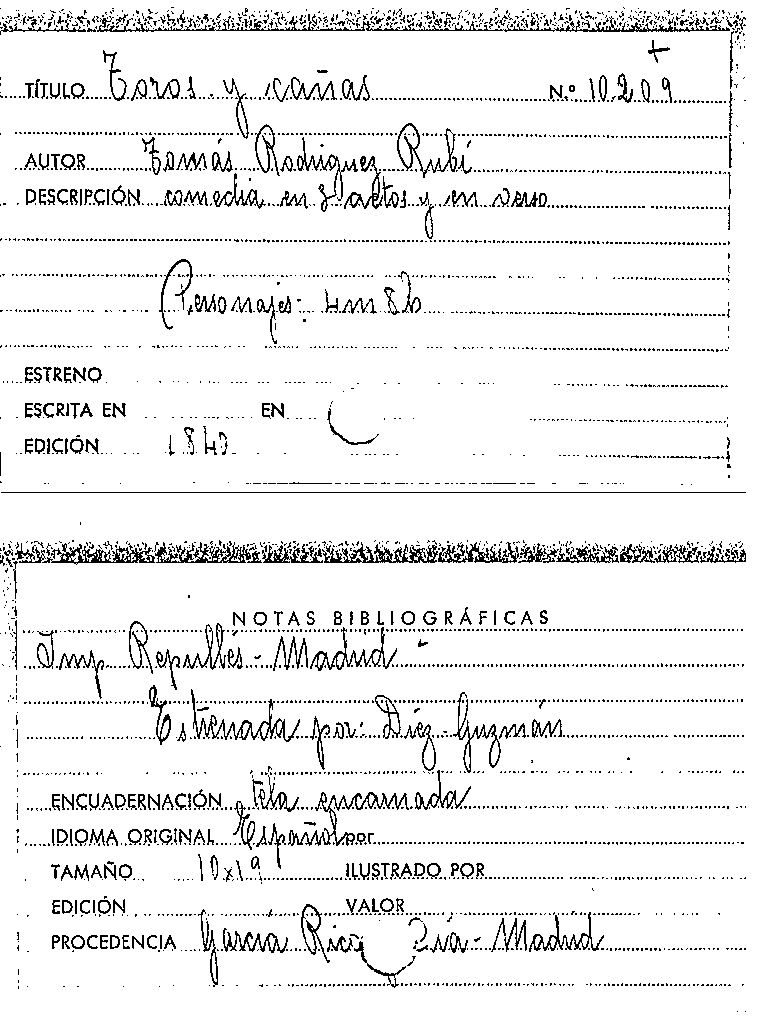 +
TÍTULO Toros y cañas N.º 10.209
AUTOR Tomás Rodriguez Rubí
DESCRIPCIÓN comedia en 3 actos y en verso
Personajes: 4m 8h
ESTRENO
ESCRITA EN EN
EDICIÓN 1840
NOTAS BIBLIOGRÁFICAS
Imp Repullés - Madrid -
Estrenada por: Díez - Guzmán
ENCUADERNACIÓN tela encarnada
IDIOMA ORIGINAL Español por
TAMAÑO 10x19 ILUSTRADO POR
EDICIÓN VALOR
PROCEDENCIA García Rico Cía - Madrid